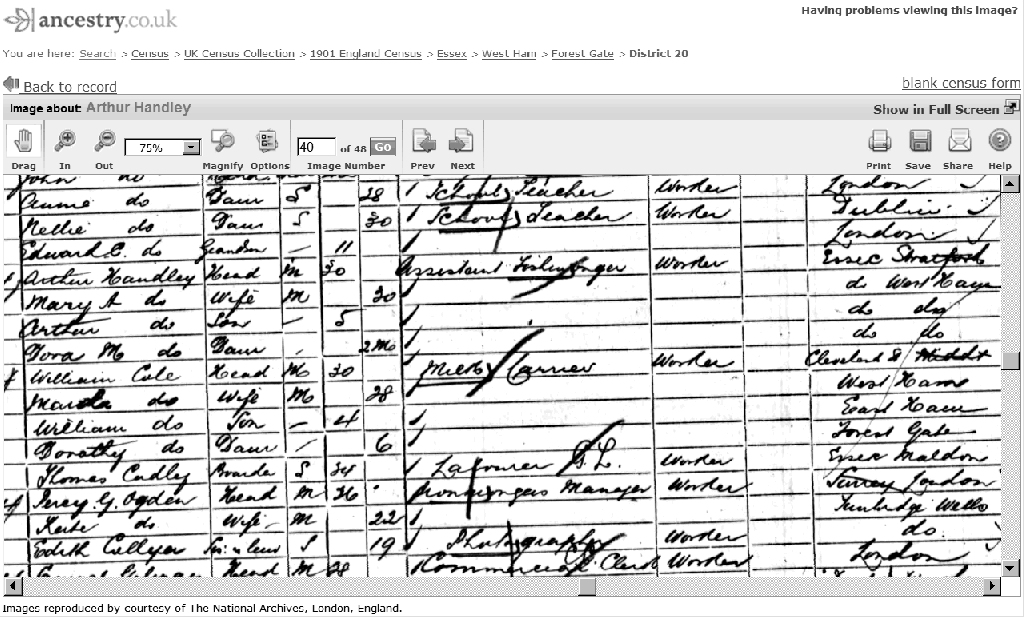 ancestry.co.uk
Having problems viewing this image?
You are here: Search > Census > UK Census Collection > 1901 England Census > Essex > West Ham > Forest Gate > District 20
Back to record
blank census form
Image about: Arthur Handley
Show in Full Screen
75%
40 of 48 Go
Drag In Out Magnify Options Image Number Prev Next Print Save Share Help
John do
do Daur S 28 School Teacher Worker London
Nellie do Daur S 30 School Teacher Worker Dublin
Edward C. do Grandson 11 London
Arthur Handley Head M 30 Assistant Fishmonger Worker Essex Stratford
Mary A do Wife M 30 do West Ham
Arthur do Son 5 do do
Dora M do Daur 2 Mo do do
William Cole Head M 30 Milk Carrier Worker Cleveland
do Wife M 28 West Ham
William do Son 4 East Ham
Dorothy do Daur 6 Forest Gate
Thomas Boarder S 34 Labourer G.L. Worker Essex Maldon
Percy G. Ogden Head M 36 Ironmongers Manager Worker Surrey London
Kate do Wife M 22 Tunbridge Wells
Edith S 19 Photography Worker do
Head M 28 Commercial Clerk Worker London
Images reproduced by courtesy of The National Archives, London, England.